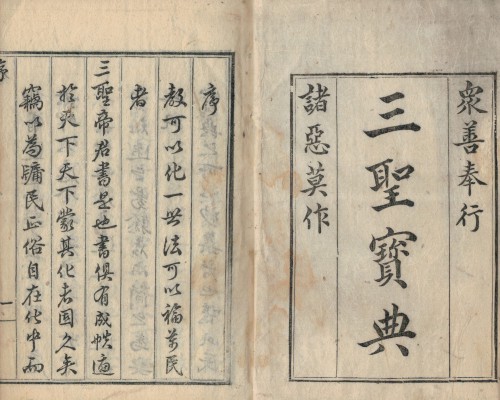 衆善奉行
三聖寶典
諸惡莫作
序
教可以化一世法可以福萬民
者
三聖帝君書是也書俱有成帙適
於天下天下蒙其化者固久矣
竊以為牖民正俗自在化中而
序
一